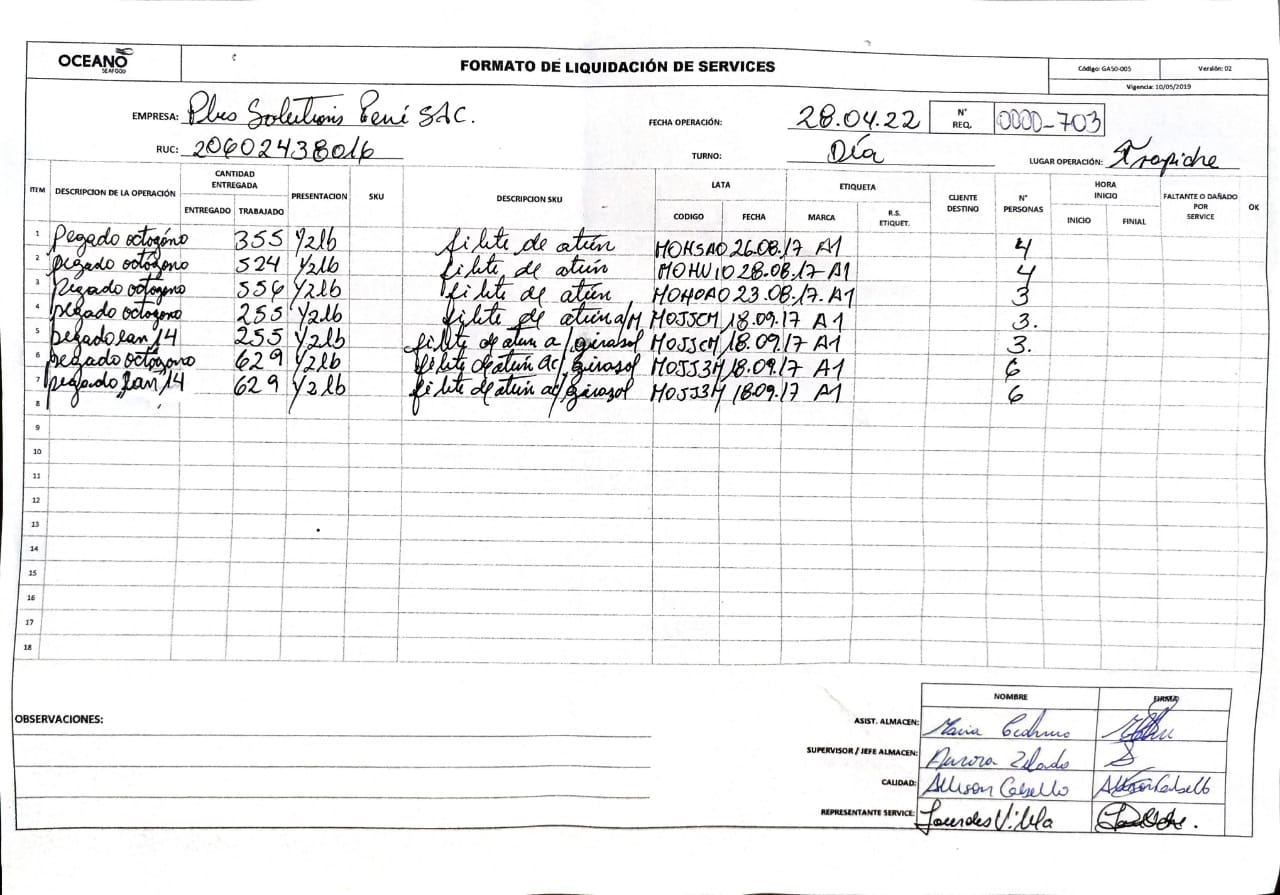 OCEANO
SEAFOOD
FORMATO DE LIQUIDACIÓN DE SERVICES
Código: GASO-005 Versión: 02
Vigencia: 10/05/2019
EMPRESA: Plus Solutions Perú SAC.
FECHA OPERACIÓN: 28.04.22 N° REQ. 0000-703
RUC: 20602438016
TURNO: Día
LUGAR OPERACIÓN: Trapiche
ITEM DESCRIPCION DE LA OPERACIÓN CANTIDAD ENTREGADA PRESENTACION SKU DESCRIPCION SKU LATA ETIQUETA CLIENTE DESTINO N° PERSONAS HORA INICIO FALTANTE O DAÑADO POR SERVICE OK
ENTREGADO TRABAJADO CODIGO FECHA MARCA R.S. ETIQUET. INICIO FINIAL
1 Pegado octogóno 355 1/2lb filete de atún MOHSAO 26.08.17 A1 4
2 pegado octógono 524 1/2lb filete de atún MOHUIO 28.08.17 A1 4
3 pegado octógono 556 1/2lb filete de atún MOHOAO 23.08.17. A1 3
4 pegado octogono 255 1/2lb filete de atún a/M MOJSCM 18.09.17 A1 3.
5 pegado lan 14 255 1/2lb filete de atún a/girasol MOJSCM 18.09.17 A1 3.
6 pegado octógono 629 1/2lb filete de atún ac/girasol MOJJ3M 18.09.17 A1 6
7 pegado lan 14 629 1/2lb filete de atún ac/girasol MOJJ3M 18.09.17 A1 6
8
9
10
11
12
13
14
15
16
17
18
NOMBRE FIRMA
OBSERVACIONES:
ASIST. ALMACEN: Maria
SUPERVISOR / JEFE ALMACEN: Aurora
CALIDAD: Allison Cabello Allison Cabello
REPRESENTANTE SERVICE: Lourdes Vilela